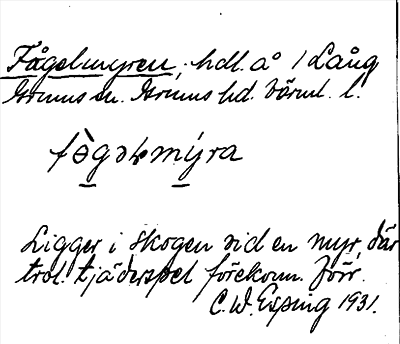 Fågelmyren, hdl. å 1 Lång
Grums sn. Grums hd. Värml. l.
fògəɫmýra
Ligger i skogen vid en myr, där
trol. tjäderspel förekom. förr.
C. W. Esping 1931.